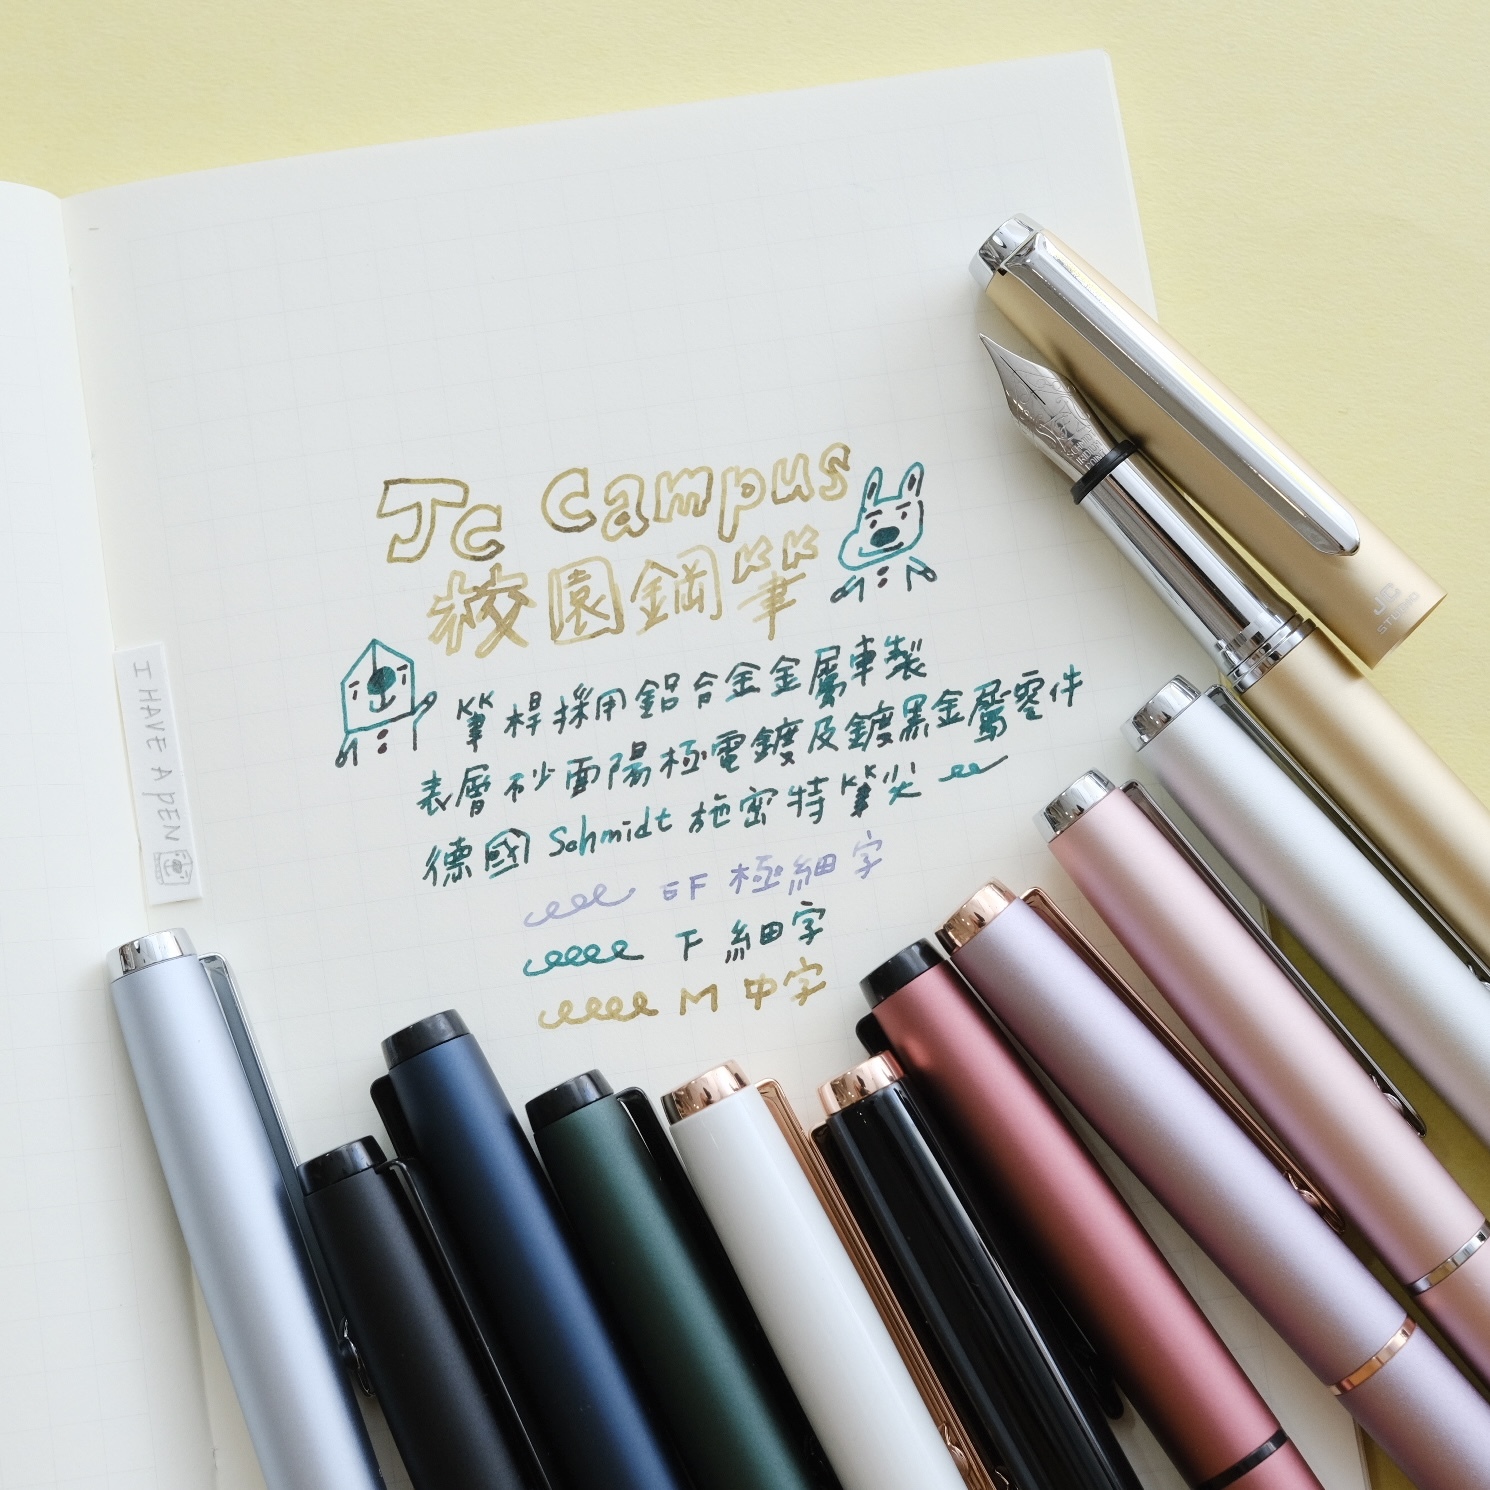 Jc Campus
校園鋼筆
筆桿採用鋁合金金屬車製
表層砂面陽極電鍍及鍍黑金屬零件
德國 Schmidt 施密特筆尖
EF 極細字
F 細字
M 中字
I HAVE A PEN
JC
STUDIO